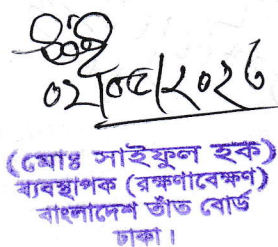 ০২/০৮/২০২৬
(মোঃ সাইফুল হক)
ব্যবস্থাপক (রক্ষণাবেক্ষণ)
বাংলাদেশ তাঁত বোর্ড
ঢাকা।